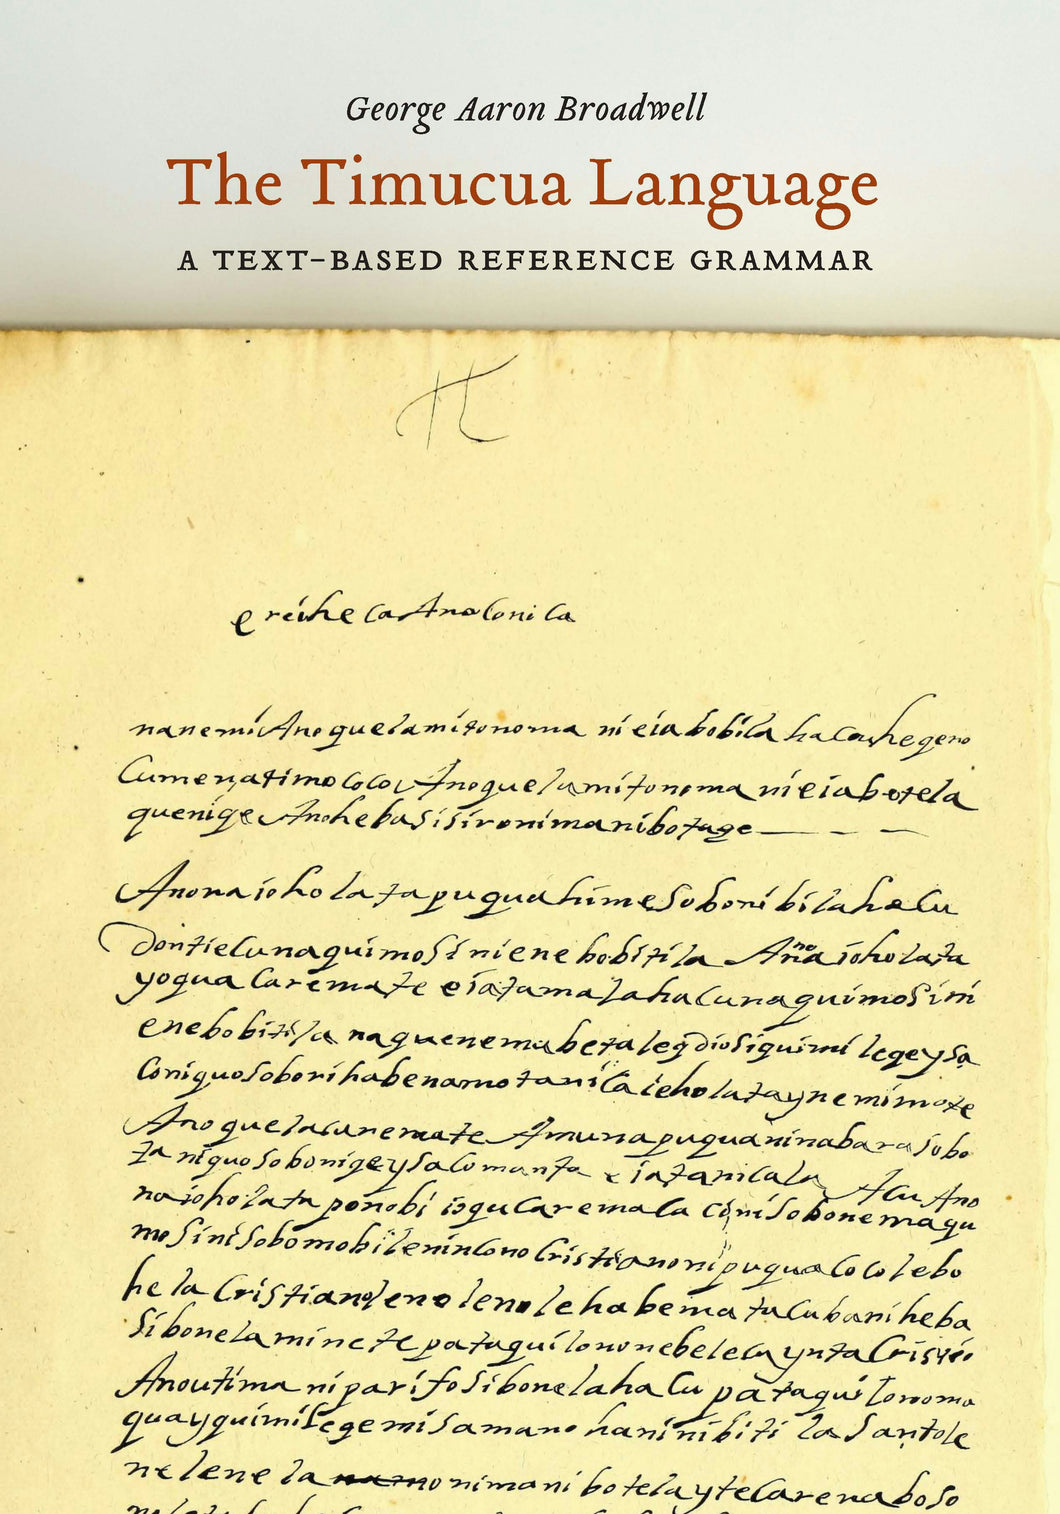 George Aaron Broadwell
The Timucua Language
A TEXT-BASED REFERENCE GRAMMAR
ereihe ca Ano loni la
nanemi Ano quelamitonoma ni eia bobila haca hegeno
Cumenatimo cocoy Ano quelamitonoma nieiabotela
quenige Anohebasisironimanibotage
Anona ioholata puquahimesoboni bilahacu
dontielunaquimosi niene bobitila Anona ioholata
yoqua Caremate eiatamalahacunaquimosini
enebobitila naquenemabetaleq diosiquimi legeysa
Coniquosoborihabenamotanica ieholataynemimate
Ano quelacaremate Amunapuquaninabarasobo
taniquosobonigeysacomanta eiatanicala Acu Ano
naioholata ponobi isquCaremaca cinisobonemaqu
mosinisobomobileninCono Cristianoni puquaCocolebo
he la Cristianoleno lenolehabema tacubaniheba
Sibonelamincte pataquilononebelecaynta
Anoutima niparifosibonelahacu pataquilonoma
quayquimilegemisamano haninibiti la Santole
nelene la onimani botelaytecarenaboso